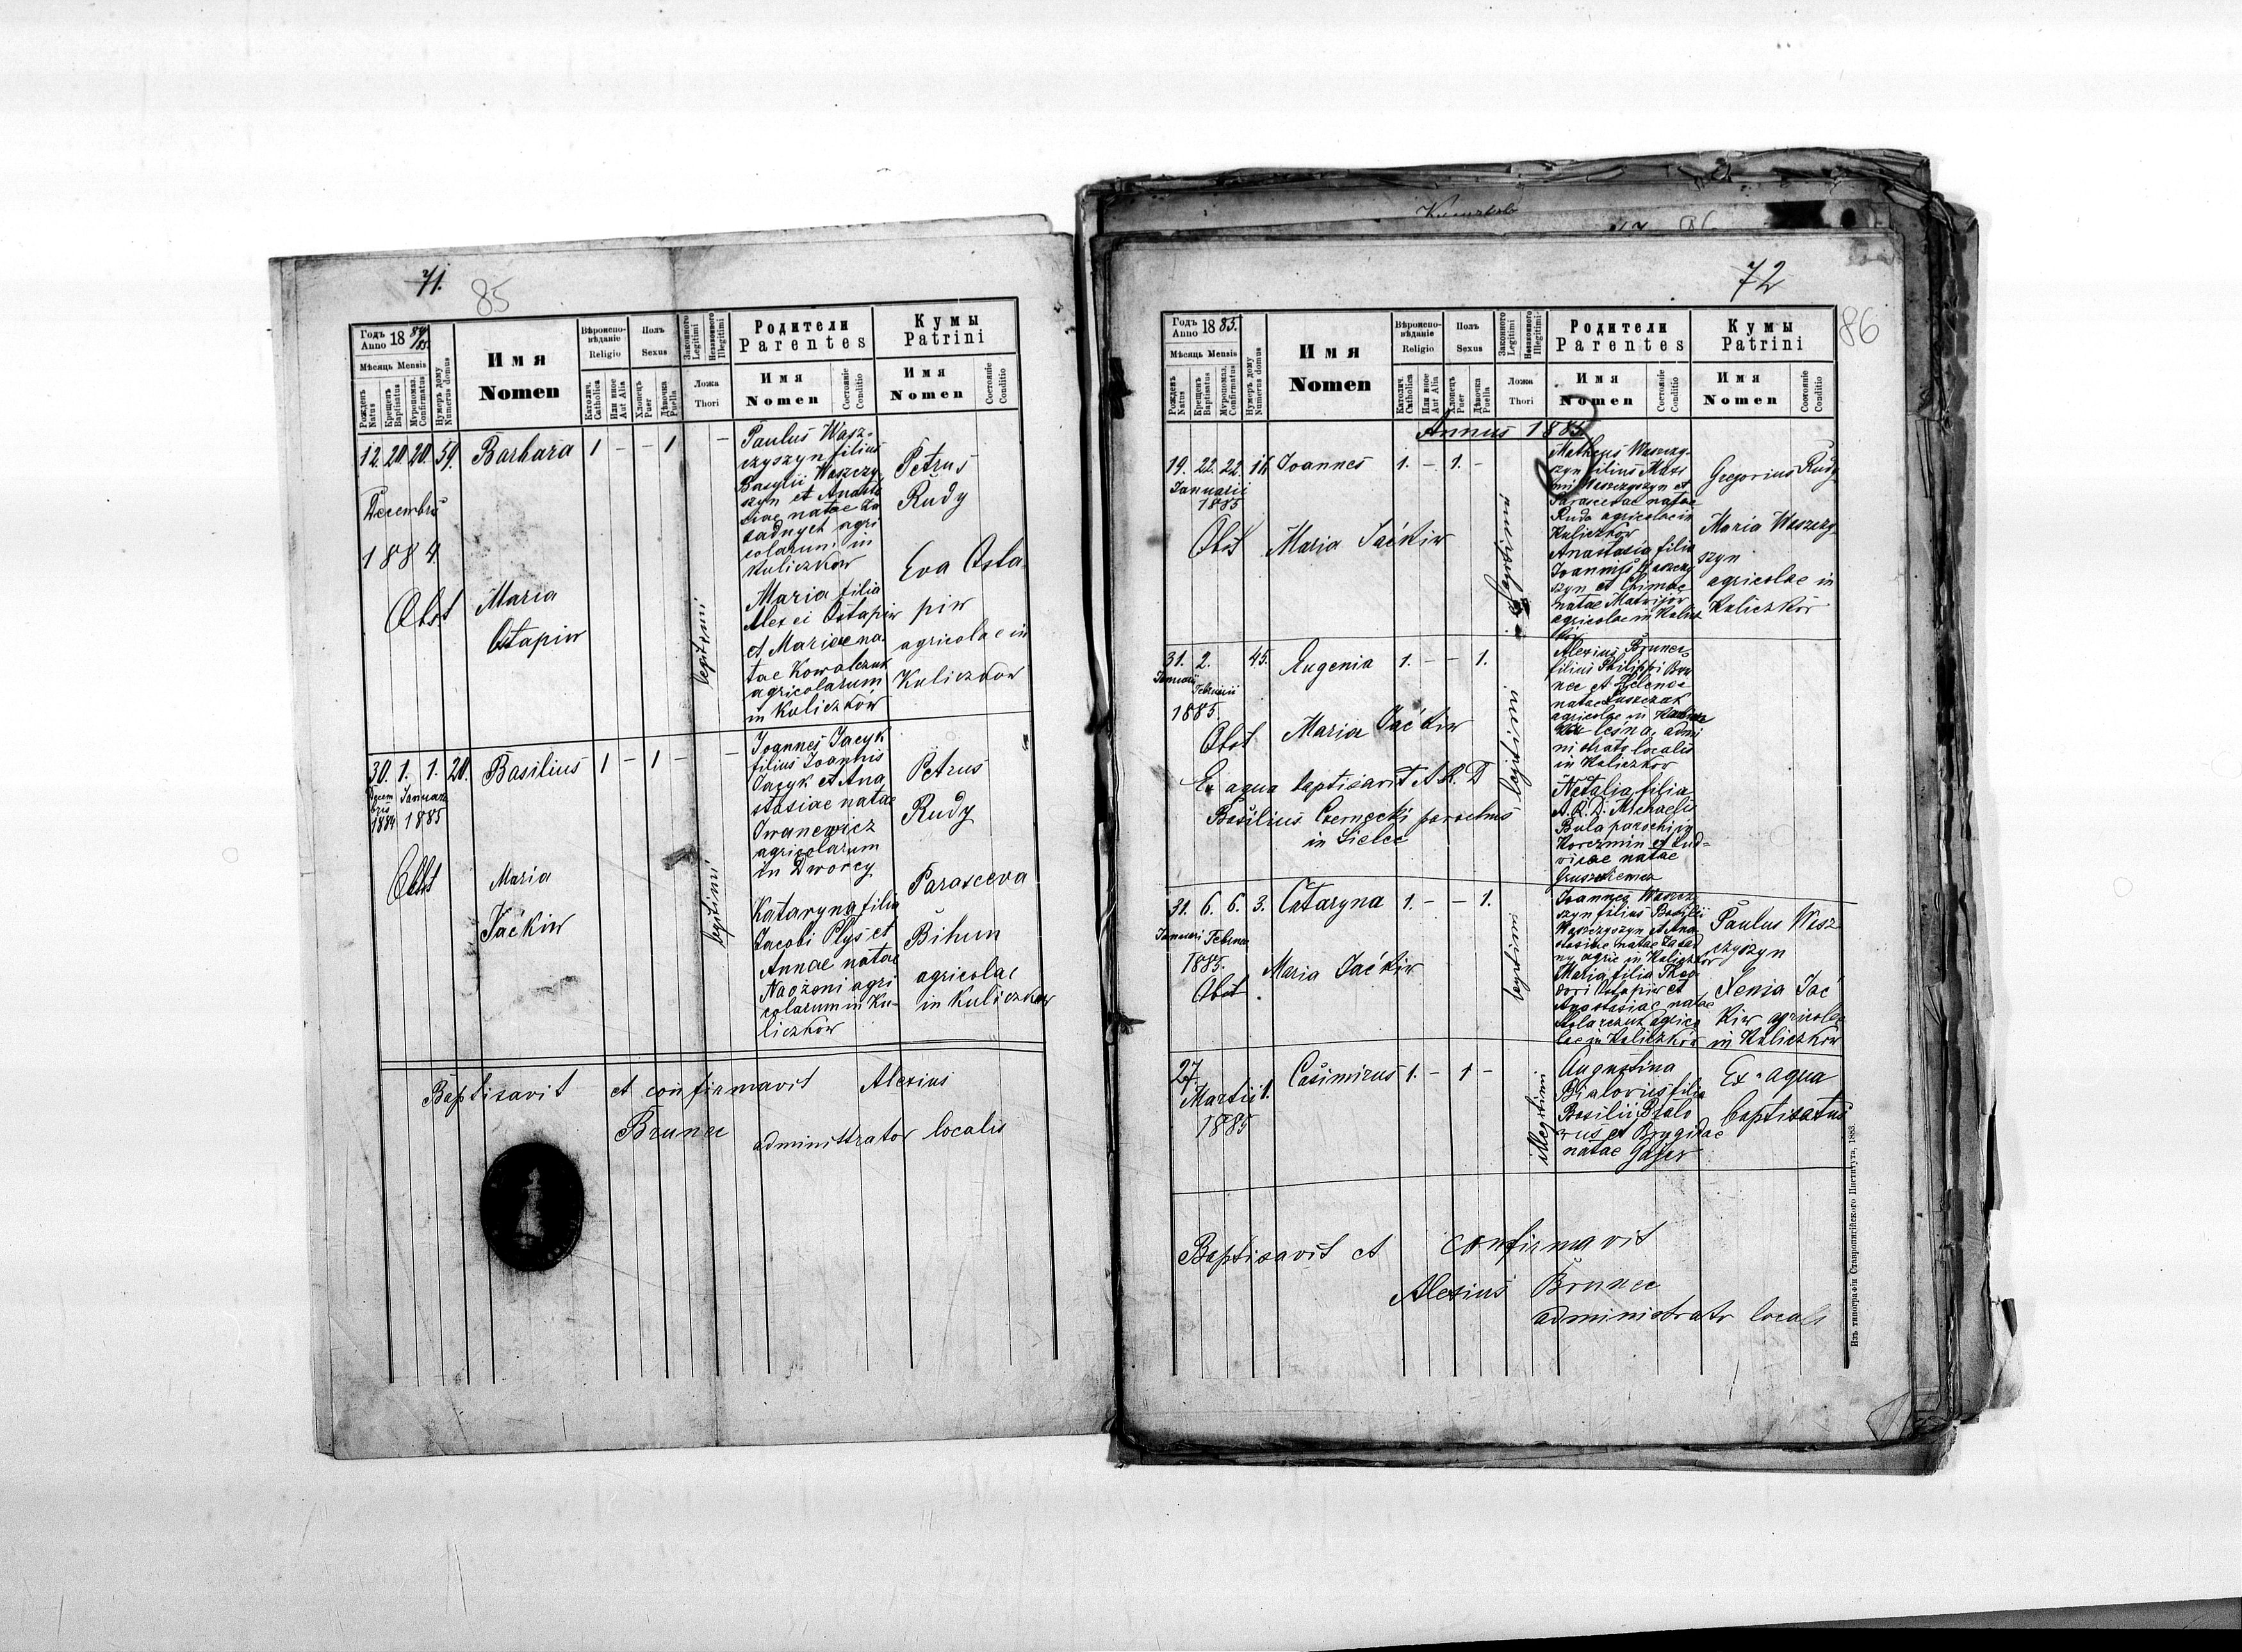 71.
85
Годъ
Anno 18 84/85.
Имя
Nomen
Вѣроиспо-
вѣданіе
Religio
Полъ
Sexus
Законного
Legitimi
Незаконного
Illegitimi
Родители
Parentes
Кумы
Patrini
Мѣсяцъ Mensis
Рожденъ
Natus
Крещенъ
Baptisatus
Мѵропомаз.
Confirmatus
Нумеръ дому
Numerus domus
Католич.
Catholica
Или иное
Aut Alia
Хлопецъ
Puer
Дѣвочка
Puella
Ложа
Thori
Имя
Nomen
Состояніе
Conditio
Имя
Nomen
Состояніе
Conditio
12. 20. 20. 59. Barbara 1 - - 1 -
Decembris
1884.
Obst. Maria
Ostapiw
legitimi
Paulus Wasz-
czyszyn filius
Basylii Waszczy
szyn et Anasta
siae natae Za
sadnych agri
colarum in
Kuliczków
Maria filia
Alexei Ostapiw
et Mariae na
tae Kowalczuk
agricolarum
in Kuliczków
Petrus
Rudy
Eva Osta
piw
agricolae in
Kuliczkow
30. 1. 1. 20. Basilius 1 - 1 - -
Decem
bris
1884
Januar
1885
Obst
Maria
Jaćkiw
legitimi
Joannes Jacyk
filius Joannis
Jacyk et Ana
stasiae natae
Iwanewicz
agricolarum
in Dworcy
Kataryna filia
Jacobi Plys et
Annae natae
agri
colarum in Ku-
liczków
Petrus
Rudy
Parasceva
Bihun
agricolae
in Kuliczkow
Baptisavit et confirmavit Alexius
Brunec administrator localis
72
86
Годъ
Anno 18 85.
Имя
Nomen
Вѣроиспо-
вѣданіе
Religio
Полъ
Sexus
Законного
Legitimi
Незаконного
Illegitimi
Родители
Parentes
Кумы
Patrini
Мѣсяцъ Mensis
Рожденъ
Natus
Крещенъ
Baptisatus
Мѵропомаз.
Confirmatus
Нумеръ дому
Numerus domus
Католич.
Catholica
Или иное
Aut Alia
Хлопецъ
Puer
Дѣвочка
Puella
Ложа
Thori
Имя
Nomen
Состояніе
Conditio
Имя
Nomen
Состояніе
Conditio
Annus 1885
19. 22. 22. 16. Joannes 1. - 1. -
Januarii
1885
Obst Maria Jaćkiw
legitimi
Matheus Waszczy-
szyn filius
Waszczyszyn et
Parascevae natae
Ruda agricolae in
Kuliczków
Anastasia filia
Joannis Waszczy
szyn et
natae
agricolae in Kulicz
ków
Gregorius Rudy
Maria Waszczy
szyn
agricolae in
Kuliczkow
31. 2. 45. Eugenia 1. - - 1.
Januarii
Februarii
1885.
Obst Maria Jaćkiw
Ex aqua baptisavit A. R. D
Basilius Czernecki parochus
in Sielec
legitimi
Alexius Brunec
filius Philippi Bru
nec et Helenae
natae
admi
nistrator localis
in Kuliczkow
Natalia filia
A. R. D. Michaelis
Bula parochi in
Korczmin et Lud-
vicae natae
31. 6. 6. 3. Cataryna 1. - - 1.
Januari Februa
1885.
Obst. Maria Jaćkiw
legitimi
Joannes Waszcz
szyn filius Basilii
Waszczyszyn et Ana
stasiae natae Zasad
ny agric in Kuliczkow
Maria filia Theo
dori Ostapiw et
Anastasiae natae
Stolarczuk agrico
lae in Kuliczków
Paulus Wasz
czyszyn
Xenia Jać
kiw agricolae
in Kuliczkow
27 1. Casimirus 1. - 1 -
Martii
1885
illegitimi
Augustina
filia
Basilii
et Brygidae
natae Gajer
Ex aqua
baptisatus
Baptisavit et confirmavit
Alexius Brunec
administrator localis
Изъ типографіи Ставропигійского Института, 1883.